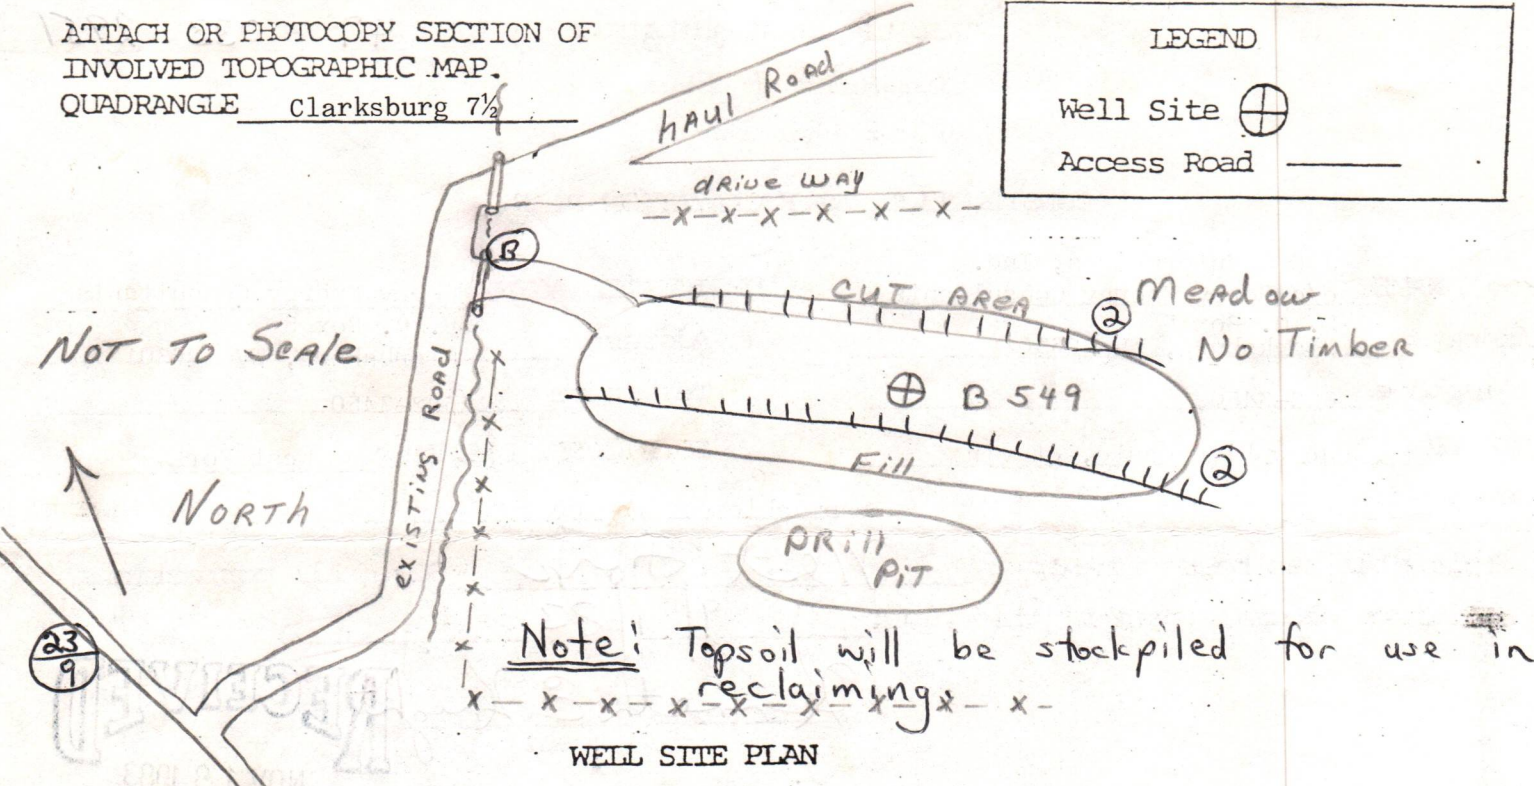 ATTACH OR PHOTOCOPY SECTION OF
INVOLVED TOPOGRAPHIC MAP.
QUADRANGLE Clarksburg 7½
LEGEND
Well Site
Access Road
hAUl RoAd
dRive wAy
B
CUT AREA
2
MeAdow
No Timber
Not To ScAle
existing RoAd
B 549
Fill
2
NoRth
DRill
PiT
23
9
Note: Topsoil will be stockpiled for use in
reclaiming.
WELL SITE PLAN
RECEIVED